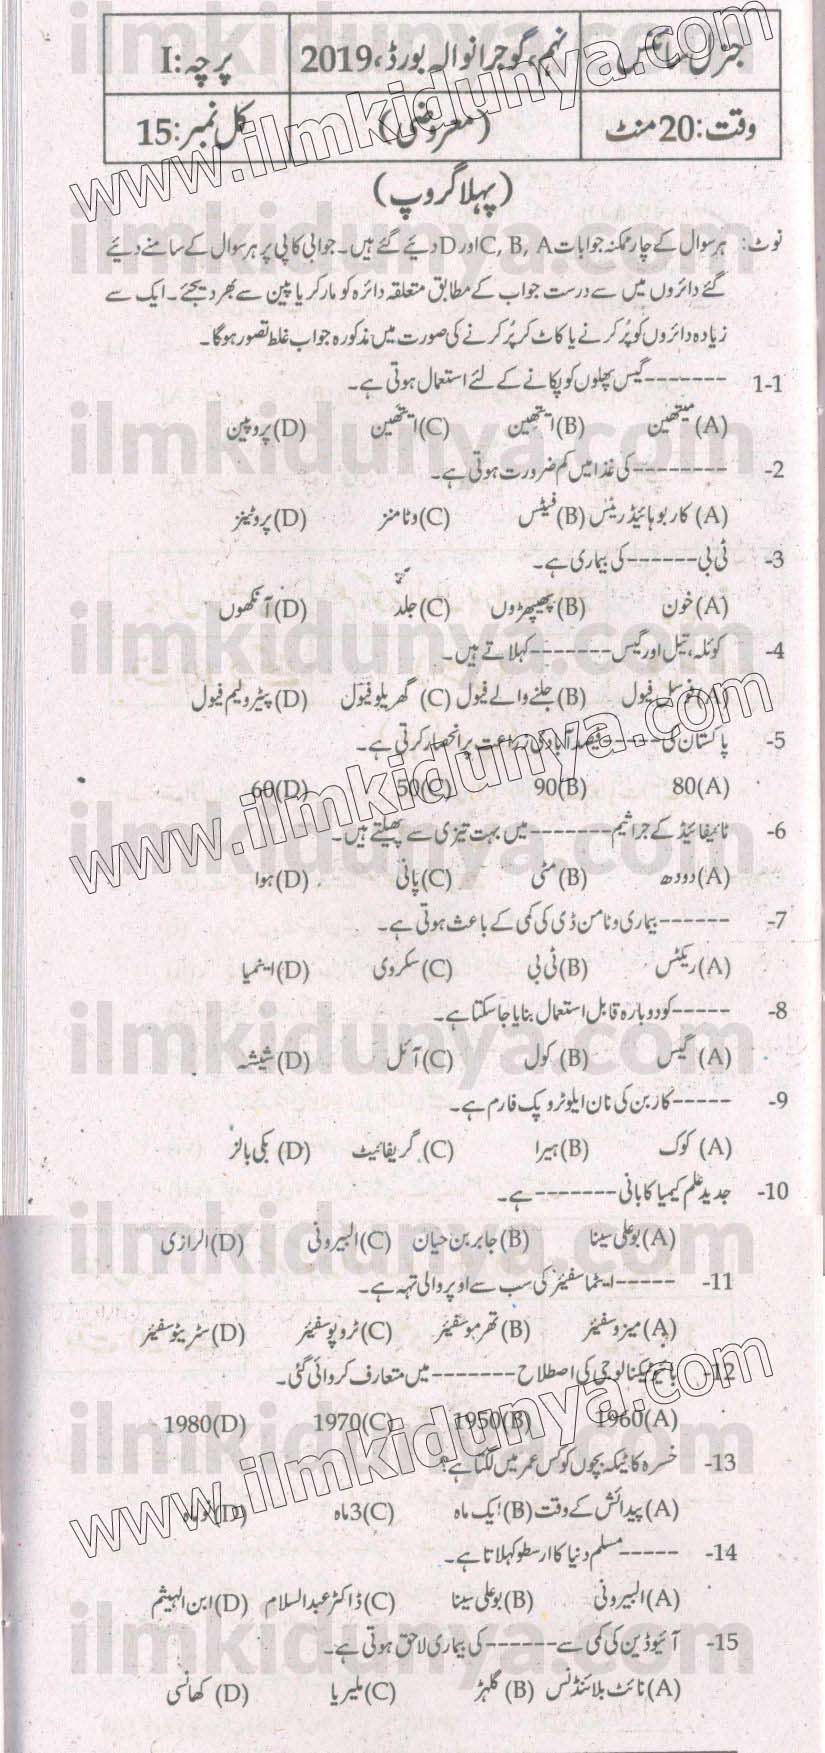 جنرل سائنس نہم، گوجرانوالہ بورڈ، 2019 پرچہ: I
وقت: 20 منٹ (معروضی) کل نمبر: 15
(پہلا گروپ)
نوٹ: ہر سوال کے چار ممکنہ جوابات C, B, A اور D دیئے گئے ہیں۔ جوابی کاپی پر ہر سوال کے سامنے دیئے
گئے دائروں میں سے درست جواب کے مطابق متعلقہ دائرہ کو مارکر یا پین سے بھر دیجئے۔ ایک سے
زیادہ دائروں کو پُر کرنے یا کاٹ کر پُر کرنے کی صورت میں مذکورہ جواب غلط تصور ہوگا۔
1-1 -------- گیس پھلوں کو پکانے کے لئے استعمال ہوتی ہے۔
(A) میتھین (B) ایتھین (C) ایتھین (D) پروپین
2- -------- کی غذا میں کم ضرورت ہوتی ہے۔
(A) کاربوہائیڈریٹس (B) فیٹس (C) وٹامنز (D) پروٹینز
3- ٹی بی ------ کی بیماری ہے۔
(A) خون (B) پھیپھڑوں (C) جلد (D) آنکھوں
4- کوئلہ، تیل اور گیس ------- کہلاتے ہیں۔
(A) فوسل فیول (B) جلنے والے فیول (C) گھریلو فیول (D) پیٹرولیم فیول
5- پاکستان کی ------ فیصد آبادی زراعت پر انحصار کرتی ہے۔
80(A) 90(B) 50(C) 60(D)
6- ٹائیفائیڈ کے جراثیم ------- میں بہت تیزی سے پھیلتے ہیں۔
(A) دودھ (B) مٹی (C) پانی (D) ہوا
7- ------ بیماری وٹامن ڈی کی کمی کے باعث ہوتی ہے۔
(A) ریکٹس (B) ٹی بی (C) سکروی (D) اینمیا
8- ----- کو دوبارہ قابل استعمال بنایا جا سکتا ہے۔
(A) گیس (B) کول (C) آئل (D) شیشہ
9- ----- کاربن کی نان ایلوٹروپک فارم ہے۔
(A) کوک (B) ہیرا (C) گریفائیٹ (D) بکی بالز
10- جدید علم کیمیا کا بانی ------- ہے۔
(A) بو علی سینا (B) جابر بن حیان (C) البیرونی (D) الرازی
11- ----- ایٹماسفیئر کی سب سے اوپر والی تہہ ہے۔
(A) میزوسفیئر (B) تھرموسفیئر (C) ٹروپوسفیئر (D) سٹریٹوسفیئر
12- بائیوٹیکنالوجی کی اصطلاح ------- میں متعارف کروائی گئی۔
1960(A) 1950(B) 1970(C) 1980(D)
13- خسرہ کا ٹیکہ بچوں کو کس عمر میں لگتا ہے؟
(A) پیدائش کے وقت (B) ایک ماہ (C) 3 ماہ (D) نو ماہ
14- ----- مسلم دنیا کا ارسطو کہلاتا ہے۔
(A) البیرونی (B) بو علی سینا (C) ڈاکٹر عبدالسلام (D) ابن الہیثم
15- آئیوڈین کی کمی سے ------ کی بیماری لاحق ہوتی ہے۔
(A) نائٹ بلائنڈنس (B) گلہڑ (C) ملیریا (D) کھانسی
ilmkidunya.com
www.ilmkidunya.com
ilmkidunya.com
ilmkidunya.com
ilmkidunya.com
www.ilmkidunya.com
ilmkidunya.com
ilmkidunya.com
ilmkidunya.com
www.ilmkidunya.com
ilmkidunya.com
ilmkidunya.com